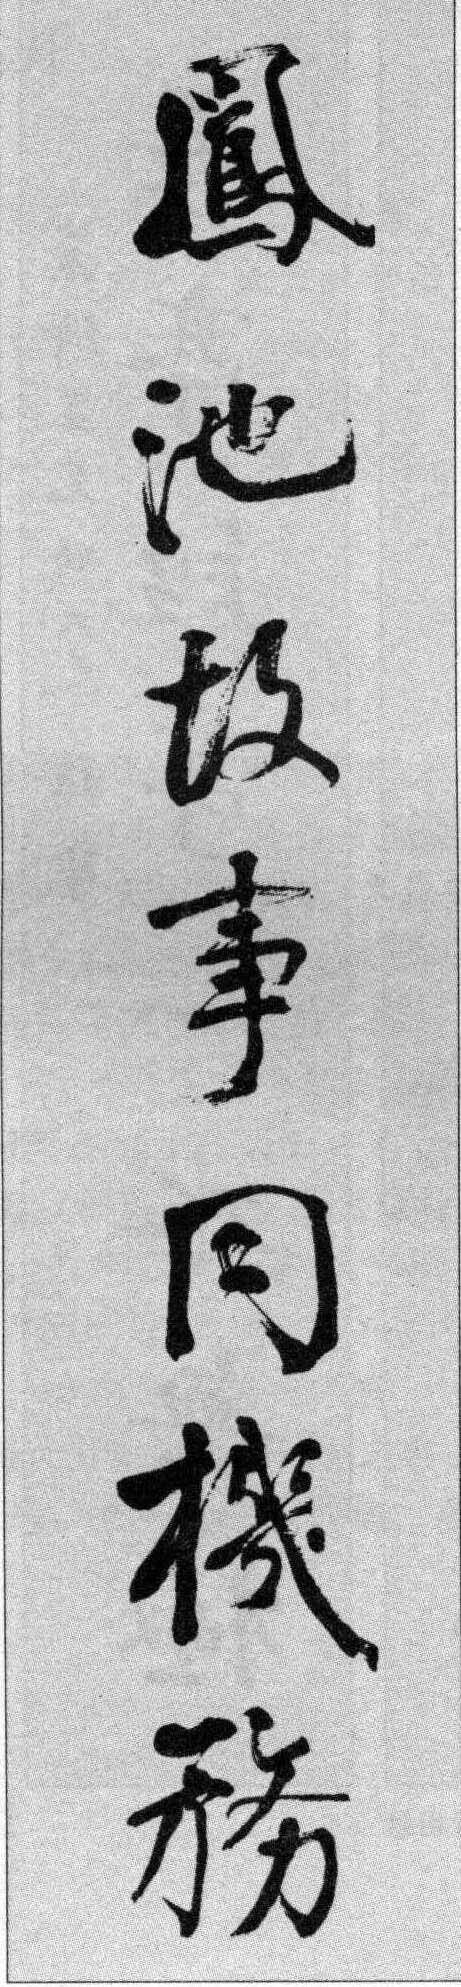 鳳池故事同機務